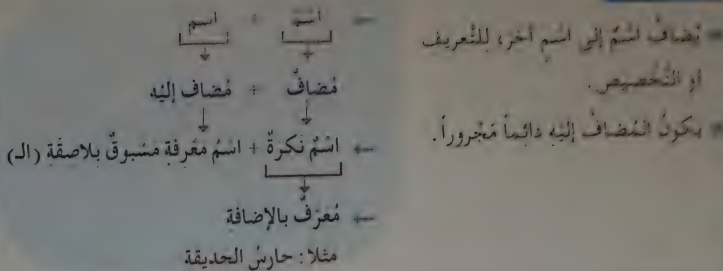 يُضافُ اسْمٌ إلى اسْمٍ آخر، لِلتَّعريف
أو التَّخْصيص.
يكونُ المُضافُ إليْهِ دائِماً مَجْروراً.
← اسْم + اسم
مُضافٌ + مُضاف إليْهِ
← اسْمٌ نَكرةٌ + اسْمُ مَعْرفةٍ مَسْبوقٌ بلاصقَة (الـ)
← مُعرَفٌ بالإضافة
مثلا: حارسُ الحديقة